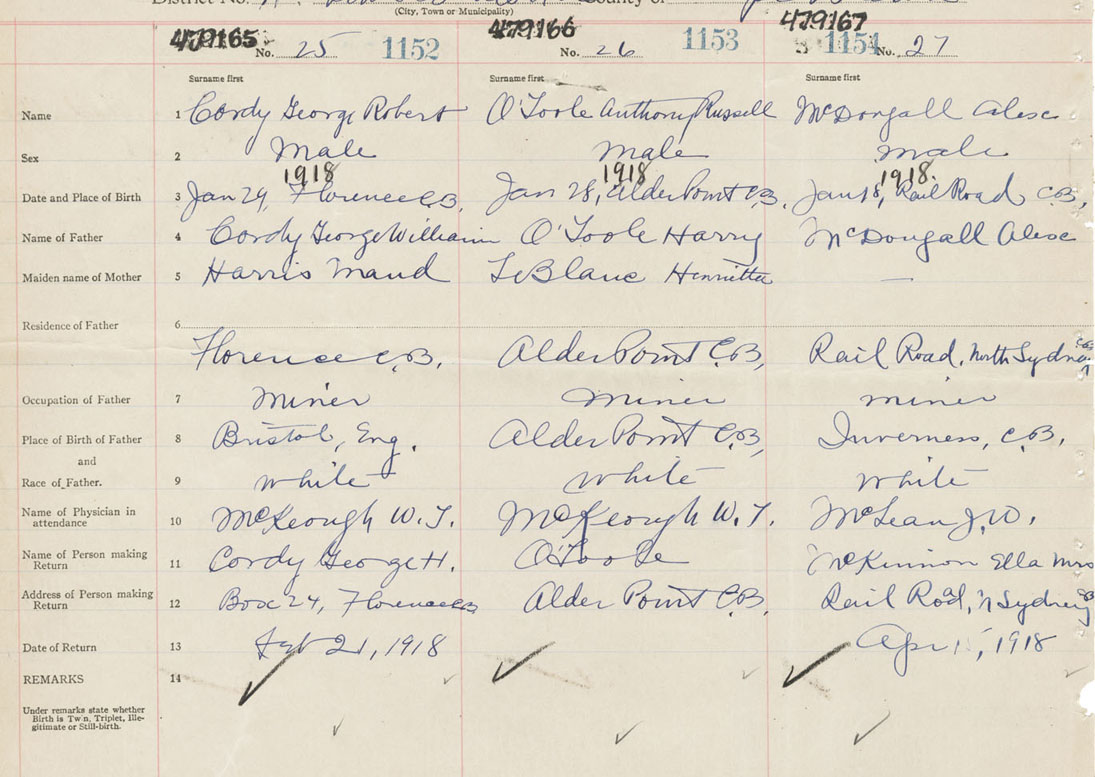 District No. County of
(City, Town or Municipality)
479165 479166 479167
No. 25 1152 No. 26 1153 1154 No. 27
Surname first Surname first Surname first
Name 1 Cordy George Robert O'Toole Anthony Russell McDougall Alex
Sex 2 Male Male Male
1918 1918 1918.
Date and Place of Birth 3 Jan 29, Florence C.B. Jan 28, Alder Point C.B. Jan 18, Rail Road C.B.
Name of Father 4 Cordy George William O'Toole Harry McDougall Alex
Maiden name of Mother 5 Harris Maud LeBlanc Henrietta —
Residence of Father 6
Florence C.B. Alder Point C.B, Rail Road, North Sydney C.B.
Occupation of Father 7 Miner Miner Miner
Place of Birth of Father 8 Bristol, Eng. Alder Point C.B, Inverness, C.B.
and
Race of Father. 9 White White White
Name of Physician in
attendance 10 McKeough W.J. McKeough W.J. McLean J.W.
Name of Person making
Return 11 Cordy George H. O'Toole McKinnon Ella Mrs
Address of Person making
Return 12 Box 24, Florence C.B Alder Point C.B, Rail Road, N Sydney C.B
Date of Return 13 Feb 21, 1918 Apr 1918
REMARKS 14
Under remarks state whether
Birth is Twin, Triplet, Ille-
gitimate or Still-birth.